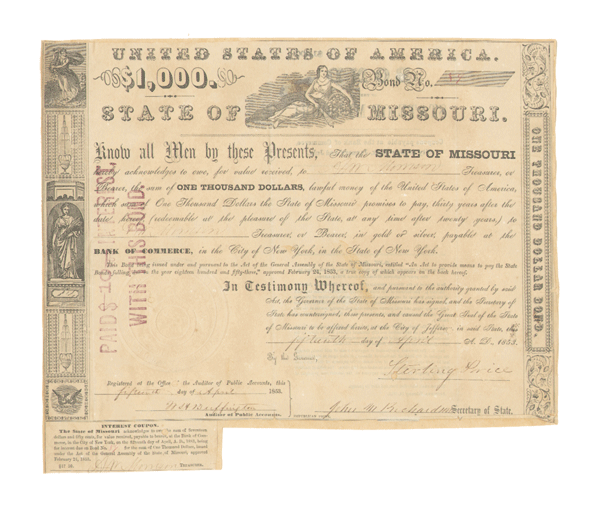 UNITED STATES OF AMERICA.
$1,000. Bond No.
STATE OF MISSOURI.
Know all Men by these Presents, That the STATE OF MISSOURI
acknowledges to owe, for value received, to Treasurer, or
Bearer, the sum of ONE THOUSAND DOLLARS, lawful money of the United States of America,
which sum of One Thousand Dollars the State of Missouri promises to pay, thirty years after the
date hereof, (redeemable at the pleasure of the State, at any time after twenty years,) to
Treasurer, or Bearer, in gold or silver, payable at the
BANK OF COMMERCE, in the City of New York, in the State of New York.
This Bond being issued under and pursuant to the Act of the General Assembly of the State of Missouri, entitled "An Act to provide means to pay the State
Bonds falling the year eighteen hundred and fifty-three," approved February 24, 1853, a true copy of which appears on the back hereof.
In Testimony Whereof, and pursuant to the authority granted by said
Act, the Governor of the State of Missouri has signed, and the Secretary of
State has countersigned, these presents, and caused the Great Seal of the State
of Missouri to be affixed hereto, at the City of Jefferson in said State, this
fifteenth day of April A. D. 1853.
By the Governor,
Sterling Price
Registered at the Office of the Auditor of Public Accounts, this
fifteenth day of April 1853.
Auditor of Public Accounts.
Secretary of State.
ONE THOUSAND DOLLAR BOND.
PAID $ INTEREST
WITH THIS BOND
INTEREST COUPON.
The State of Missouri acknowledges to owe the sum of
dollars and fifty cents, for value received, payable to bearer, at the Bank of Commerce,
in the City of New York, on the fifteenth day of April, A. D.
being the interest due on Bond No. for the sum of One Thousand Dollars, issued
under the Act of the General Assembly of the State of Missouri, approved
February 24, 1853.
Treasurer.